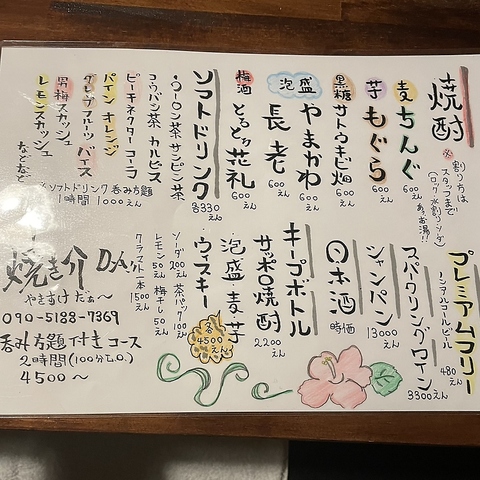 焼酎
※割り方は
スタッフまで
麦 ちんぐ 600えん
芋 もぐら 600えん
黒糖 サトウキビ畑 600えん
泡盛 やまかわ 600えん
長老 600えん
梅酒 とろとろ花札 600えん
ソフトドリンク 各330えん
・ウーロン茶 サンピン茶
コウバシ茶 カルピス
ピーチネクター コーラ
パイン オレンジ
グレープフルーツ
男梅スカッシュ
レモンスカッシュ
などなど
※ソフトドリンク呑み方題
1時間 1000えん
プレミアムフリー
ノンアルコールビール 480えん
スパークリングワイン 3300えん
シャンパン 13000えん
日本酒 時価
キープボトル
サッポロ焼酎 2200えん
泡盛 麦 芋
ウィスキー 各4500えん
ソーダ 200えん 茶パック 100えん
レモン 50えん 梅干し 50えん
焼き介 DA〜!
やきすけ だぁ〜
090-5188-7369
呑み方題 付き コース
2時間(100分L.O.)
4500〜